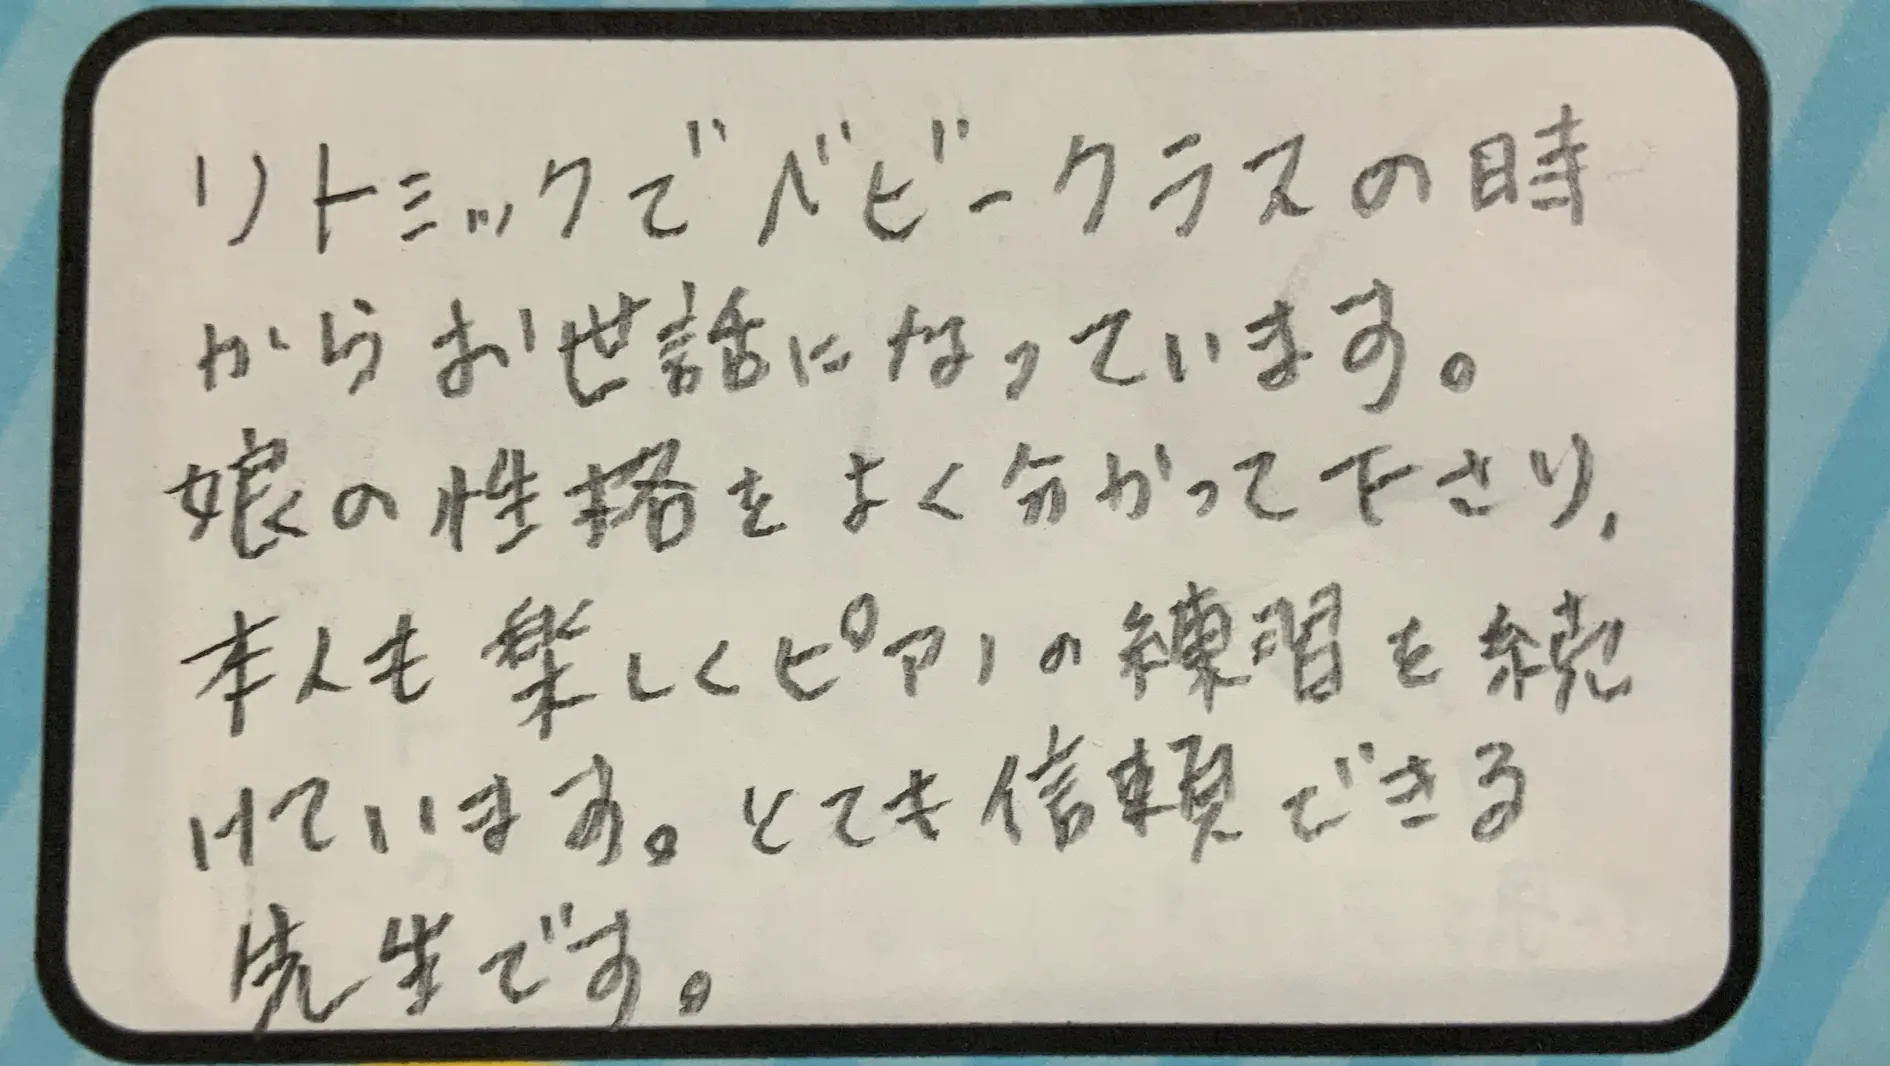 リトミックでベビークラスの時
からお世話になっています。
娘の性格をよく分かって下さり、
本人も楽しくピアノの練習を続
けています。とても信頼できる
先生です。